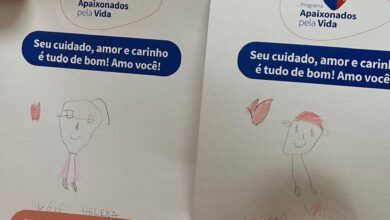 Apaixonados
pela Vida
Seu cuidado, amor e carinho
é tudo de bom! Amo você!
HELENA
Programa
Apaixonados
pela Vida
Seu cuidado, amor e carin
é tudo de bom! Amo você!